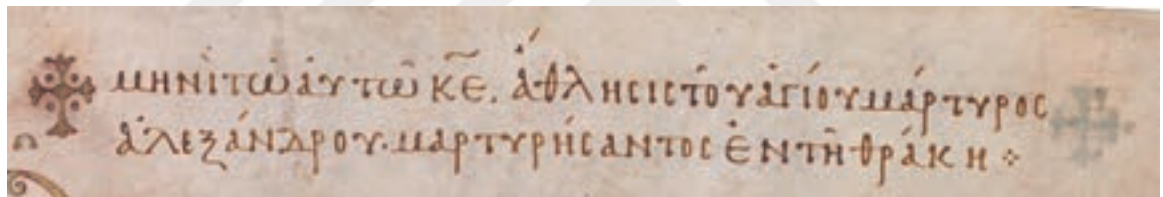 μηνὶ τῶ αὐτῶ κε̅. ἄθλησις τοῦ ἁγίου μάρτυρος
ἀλεξάνδρου. μαρτυρήσαντος ἐν τῆ θράκη